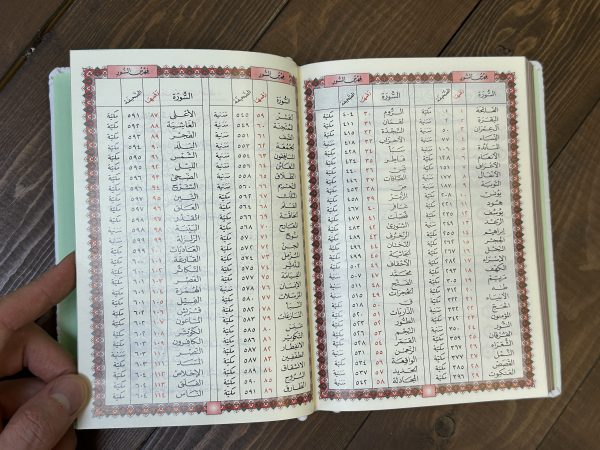 فهرس السور
السورة رقمها الصفحة
الفاتحة ١ ١ مكية
البقرة ٢ ٢ مدنية
آل عمران ٣ ٥٠ مدنية
النساء ٤ ٧٧ مدنية
المائدة ٥ ١٠٦ مدنية
الأنعام ٦ ١٢٨ مكية
الأعراف ٧ ١٥١ مكية
الأنفال ٨ ١٧٧ مدنية
التوبة ٩ ١٨٧ مدنية
يونس ١٠ ٢٠٨ مكية
هود ١١ ٢٢١ مكية
يوسف ١٢ ٢٣٥ مكية
الرعد ١٣ ٢٤٩ مدنية
إبراهيم ١٤ ٢٥٥ مكية
الحجر ١٥ ٢٦٢ مكية
النحل ١٦ ٢٦٧ مكية
الإسراء ١٧ ٢٨٢ مكية
الكهف ١٨ ٢٩٣ مكية
مريم ١٩ ٣٠٥ مكية
طه ٢٠ ٣١٢ مكية
الأنبياء ٢١ ٣٢٢ مكية
الحج ٢٢ ٣٣٢ مدنية
المؤمنون ٢٣ ٣٤٢ مكية
النور ٢٤ ٣٥٠ مدنية
الفرقان ٢٥ ٣٥٩ مكية
الشعراء ٢٦ ٣٦٧ مكية
النمل ٢٧ ٣٧٧ مكية
القصص ٢٨ ٣٨٥ مكية
العنكبوت ٢٩ ٣٩٦ مكية
فهرس السور
السورة رقمها الصفحة
الروم ٣٠ ٤٠٤ مكية
لقمان ٣١ ٤١١ مكية
السجدة ٣٢ ٤١٥ مكية
الأحزاب ٣٣ ٤١٨ مدنية
سبأ ٣٤ ٤٢٨ مكية
فاطر ٣٥ ٤٣٤ مكية
يس ٣٦ ٤٤٠ مكية
الصافات ٣٧ ٤٤٦ مكية
ص ٣٨ ٤٥٣ مكية
الزمر ٣٩ ٤٥٨ مكية
غافر ٤٠ ٤٦٧ مكية
فصلت ٤١ ٤٧٧ مكية
الشورى ٤٢ ٤٨٣ مكية
الزخرف ٤٣ ٤٨٩ مكية
الدخان ٤٤ ٤٩٦ مكية
الجاثية ٤٥ ٤٩٩ مكية
الأحقاف ٤٦ ٥٠٢ مكية
محمد ٤٧ ٥٠٧ مدنية
الفتح ٤٨ ٥١١ مدنية
الحجرات ٤٩ ٥١٥ مدنية
ق ٥٠ ٥١٨ مكية
الذاريات ٥١ ٥٢٠ مكية
الطور ٥٢ ٥٢٣ مكية
النجم ٥٣ ٥٢٦ مكية
القمر ٥٤ ٥٢٨ مكية
الرحمن ٥٥ ٥٣١ مدنية
الواقعة ٥٦ ٥٣٤ مكية
الحديد ٥٧ ٥٣٧ مدنية
المجادلة ٥٨ ٥٤٢ مدنية
فهرس السور
السورة رقمها الصفحة
الحشر ٥٩ ٥٤٥ مدنية
الممتحنة ٦٠ ٥٤٩ مدنية
الصف ٦١ ٥٥١ مدنية
الجمعة ٦٢ ٥٥٣ مدنية
المنافقون ٦٣ ٥٥٤ مدنية
التغابن ٦٤ ٥٥٦ مدنية
الطلاق ٦٥ ٥٥٨ مدنية
التحريم ٦٦ ٥٦٠ مدنية
الملك ٦٧ ٥٦٢ مكية
القلم ٦٨ ٥٦٤ مكية
الحاقة ٦٩ ٥٦٦ مكية
المعارج ٧٠ ٥٦٨ مكية
نوح ٧١ ٥٧٠ مكية
الجن ٧٢ ٥٧٢ مكية
المزمل ٧٣ ٥٧٤ مكية
المدثر ٧٤ ٥٧٥ مكية
القيامة ٧٥ ٥٧٧ مكية
الإنسان ٧٦ ٥٧٨ مدنية
المرسلات ٧٧ ٥٨٠ مكية
النبأ ٧٨ ٥٨٢ مكية
النازعات ٧٩ ٥٨٣ مكية
عبس ٨٠ ٥٨٥ مكية
التكوير ٨١ ٥٨٦ مكية
الانفطار ٨٢ ٥٨٧ مكية
المطففين ٨٣ ٥٨٧ مكية
الانشقاق ٨٤ ٥٨٩ مكية
البروج ٨٥ ٥٩٠ مكية
الطارق ٨٦ ٥٩١ مكية
فهرس السور
السورة رقمها الصفحة
الأعلى ٨٧ ٥٩١ مكية
الغاشية ٨٨ ٥٩٢ مكية
الفجر ٨٩ ٥٩٣ مكية
البلد ٩٠ ٥٩٤ مكية
الشمس ٩١ ٥٩٥ مكية
الليل ٩٢ ٥٩٥ مكية
الضحى ٩٣ ٥٩٦ مكية
الشرح ٩٤ ٥٩٦ مكية
التين ٩٥ ٥٩٧ مكية
العلق ٩٦ ٥٩٧ مكية
القدر ٩٧ ٥٩٨ مكية
البينة ٩٨ ٥٩٨ مدنية
الزلزلة ٩٩ ٥٩٩ مدنية
العاديات ١٠٠ ٥٩٩ مكية
القارعة ١٠١ ٦٠٠ مكية
التكاثر ١٠٢ ٦٠٠ مكية
العصر ١٠٣ ٦٠١ مكية
الهمزة ١٠٤ ٦٠١ مكية
الفيل ١٠٥ ٦٠١ مكية
قريش ١٠٦ ٦٠٢ مكية
الماعون ١٠٧ ٦٠٢ مكية
الكوثر ١٠٨ ٦٠٢ مكية
الكافرون ١٠٩ ٦٠٣ مكية
النصر ١١٠ ٦٠٣ مدنية
المسد ١١١ ٦٠٣ مكية
الإخلاص ١١٢ ٦٠٤ مكية
الفلق ١١٣ ٦٠٤ مكية
الناس ١١٤ ٦٠٤ مكية